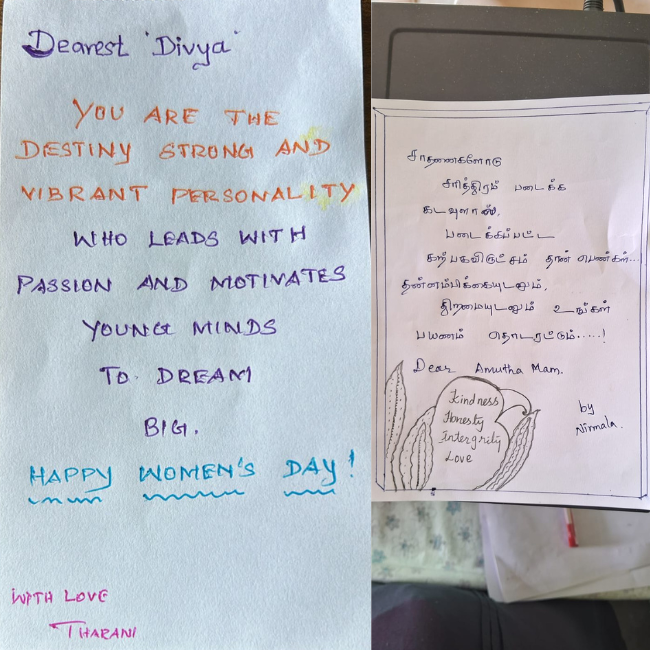 Dearest "Divya"
YOU ARE THE
DESTINY STRONG AND
VIBRANT PERSONALITY
WHO LEADS WITH
PASSION AND MOTIVATES
YOUNG MINDS
TO DREAM
BIG.
HAPPY WOMEN'S DAY!
WITH LOVE
THARANI
சாதனைகளோடு
சரித்திரம் படைக்க
கடவுளால்,
படைக்கப்பட்ட
கற்பகவிருட்சம் தான் பெண்கள்...
தன்னம்பிக்கையுடனும்,
திறமையுடனும் உங்கள்
பயணம் தொடரட்டும்.....!
Dear Amutha Mam.
Kindness
Honesty
Intergrity
Love
by
Nirmala.